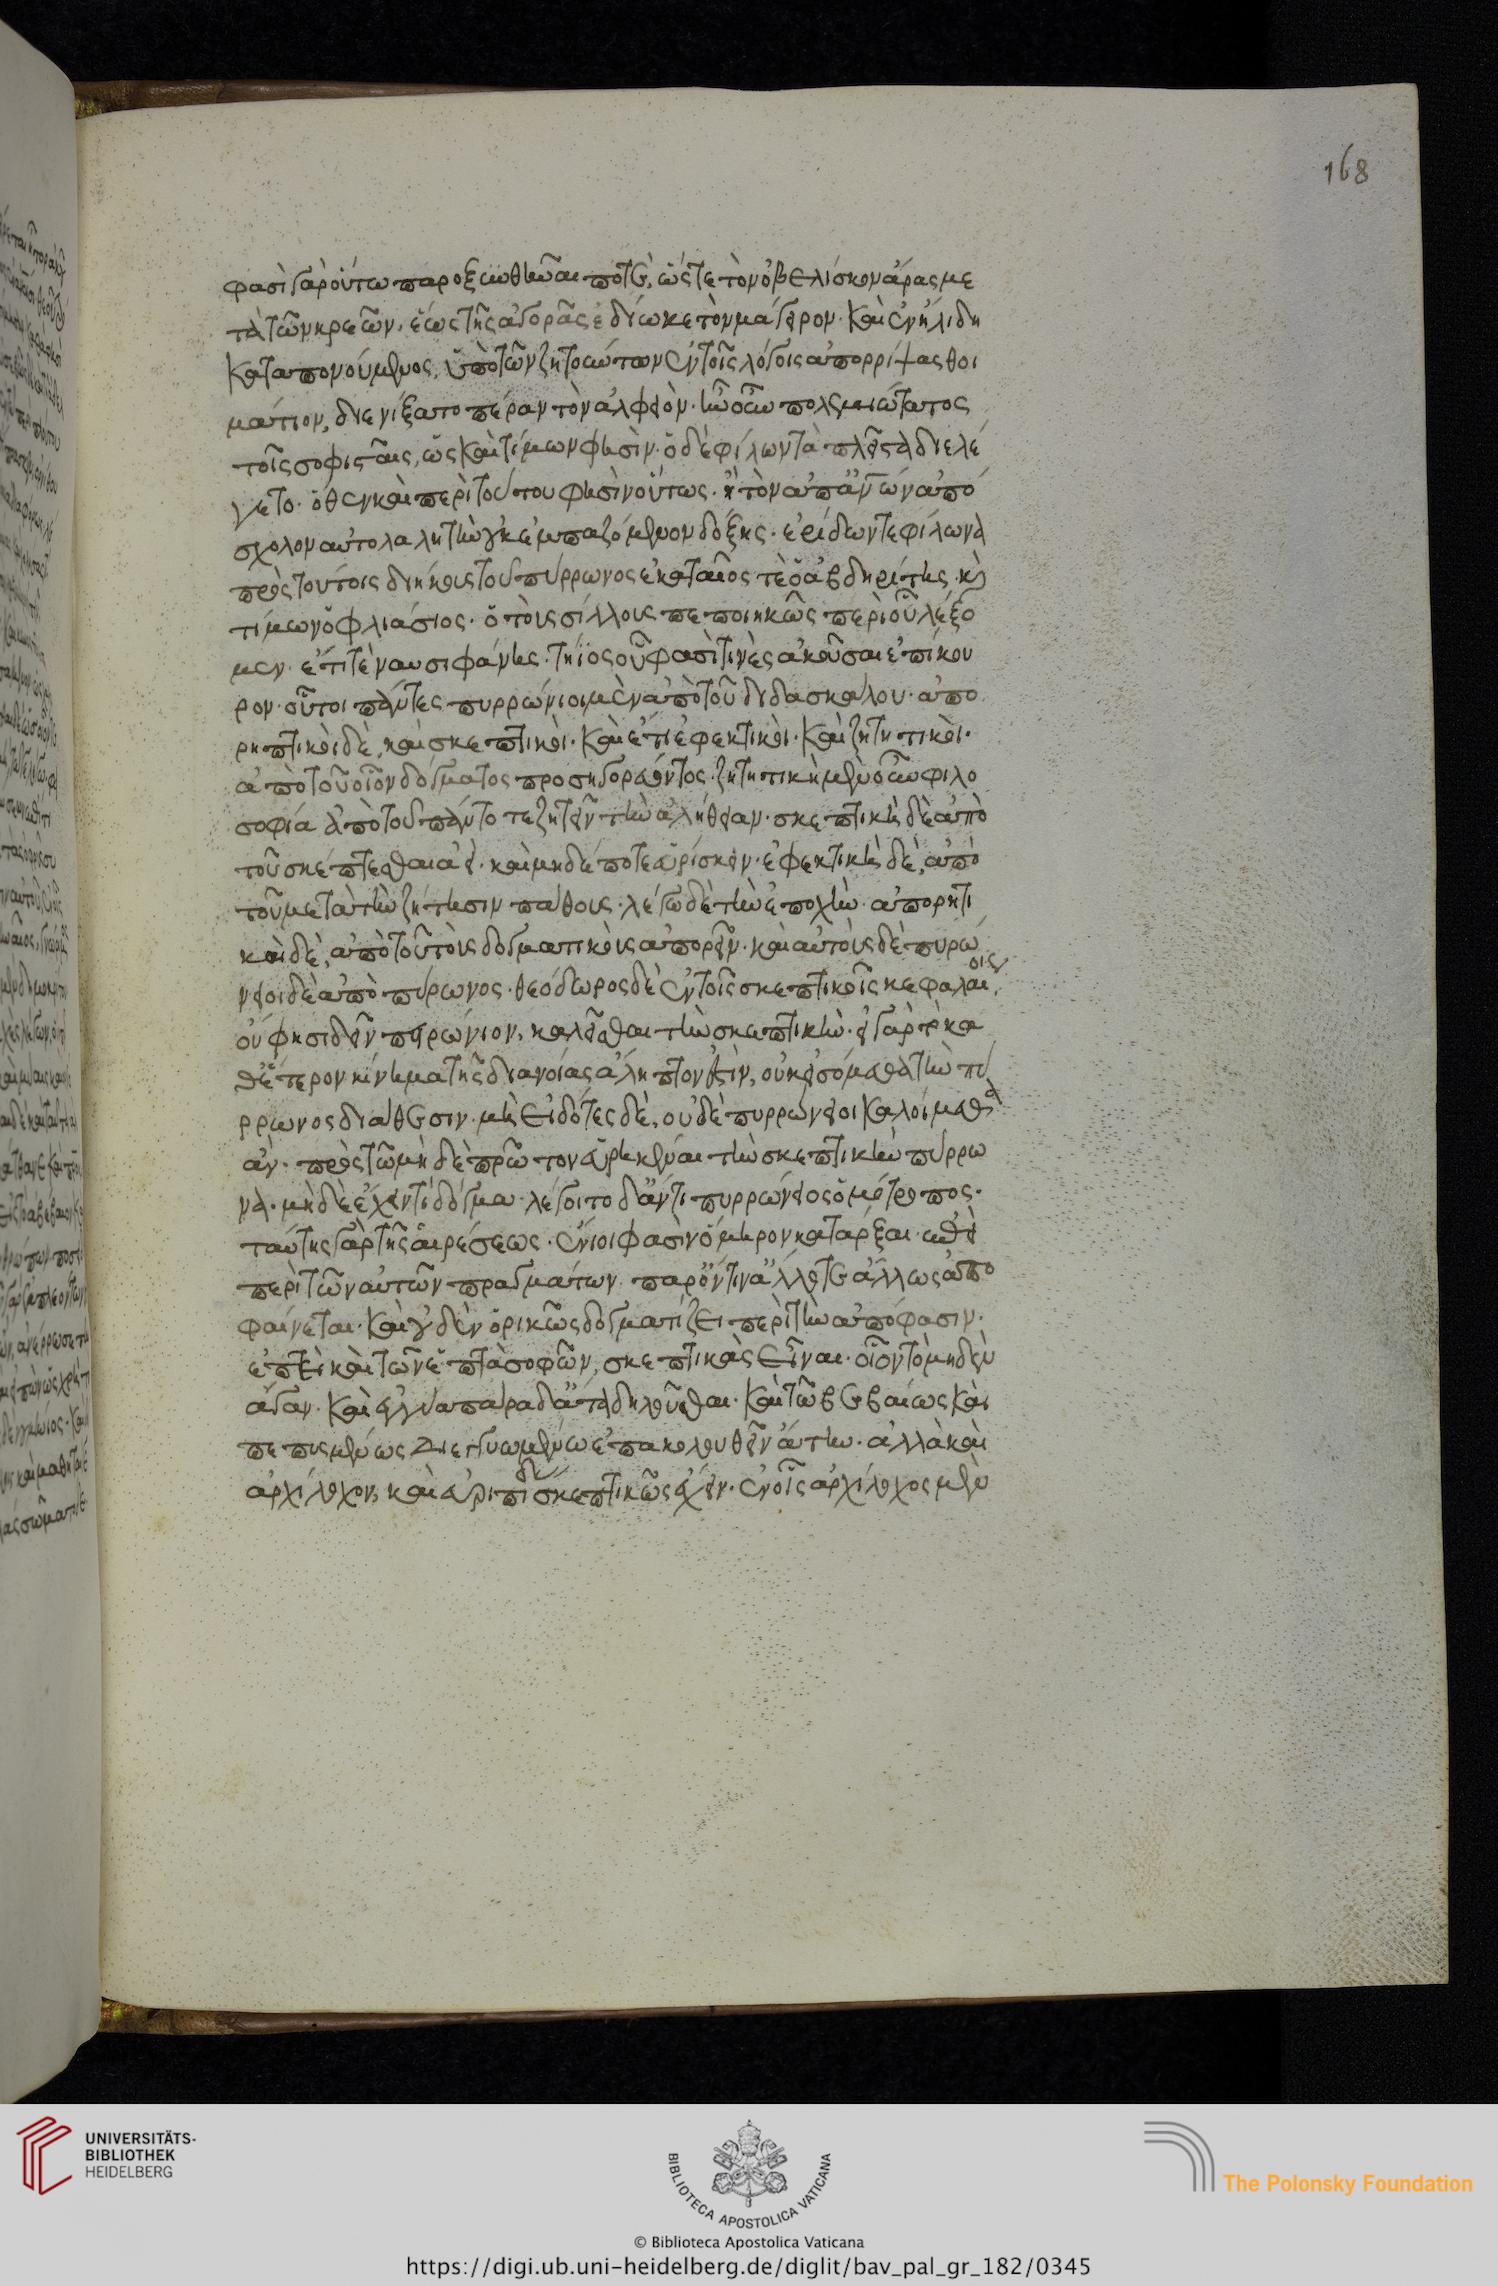 168
φασὶ γὰρ οὕτω παροξυνθῆναι ποτὲ, ὥστε τὸν ὀβελίσκον ἄρας με
τὰ τῶν κρεῶν, ἕως τῆς ἀγορᾶς ἐδίωκε τὸν μάγειρον· καὶ ἐν ἤλιδι
καταπονούμενος, ὑπὸ τῶν ζητούντων ἐν τοῖς λόγοις ἀπορρίψας θοι
μάτιον, διενίξατο πέραν τὸν ἀλφειόν· ἦν οὖν πολεμιώτατος
τοῖς σοφισταῖς, ὡς καὶ τίμων φησίν· ὁ δὲ φίλων τὰ πλεῖστα διελέ
γετο· ὅθεν καὶ περὶ τούτου φησὶν οὕτως· ἢ τὸν ἀπ' ἀνθρώπων ἀπό
σχολον αὐτολαλητὴν οὐκ ἐμπαζόμενον δόξης· ἐρίδων τε φίλωνα
πρὸς τούτοις διήκουε τοῦ πύρρωνος ἑκαταῖος τε ὁ ἀβδηρίτης, καὶ
τίμων ὁ φλιάσιος· ὁ τοὺς σίλλους πεποιηκὼς περὶ οὗ λέξο
μεν· ἔτι τε ναυσιφάνης· τήϊος οὗ φασί τινὲς ἀκοῦσαι ἐπίκου
ρον· οὗτοι πάντες πυρρώνιοι μὲν ἀπὸ τοῦ διδασκάλου· ἀπο
ρητικοὶ δὲ, καὶ σκεπτικοί· καὶ ἔτι ἐφεκτικοί· καὶ ζητητικοί·
ἀπὸ τοῦ οἷον δόγματος προσηγορεύοντο· ζητητικὴ μὲν οὖν φιλο
σοφία ἀπὸ τοῦ πάντοτε ζητεῖν τὴν ἀλήθειαν· σκεπτικὴ δὲ ἀπὸ
τοῦ σκέπτεσθαι ἀεί· καὶ μηδέποτε εὑρίσκειν· ἐφεκτικὴ δὲ, ἀπὸ
τοῦ μετὰ τὴν ζήτησιν πάθους· λέγω δὲ τὴν ἐποχήν· ἀπορητι
κοὶ δὲ, ἀπὸ τοῦ τοὺς δογματικοὺς ἀπορεῖν· καὶ αὐτοὺς δὲ πυρώ
νειοι δὲ ἀπὸ πύρωνος· θεόδωρος δὲ ἐν τοῖς σκεπτικοῖς κεφαλαίοις
οὔ φησι δεῖν πυρώνιον, καλεῖσθαι τὴν σκεπτικήν· εἰ γὰρ τὸ κα
θ' ἕτερον κίνημα τῆς διανοίας ἄληπτον ἐστὶν, οὐκ εἰσόμεθα τὴν πύ
ρρωνος διάθεσιν· μὴ εἰδότες δὲ, οὐδὲ πυρρώνειοι καλοίμεθα
ἄν· πρὸς τῷ μὴ δὲ πρῶτον εὑρηκέναι τὴν σκεπτικὴν πύρρω
να· μὴ δὲ ἔχειν τί δόγμα· λέγοιτο δ' ἄν τι πυρρώνειος ὁμότροπος·
ταύτης γὰρ τῆς αἱρέσεως· ἔνιοι φασὶν ὅμηρον κατάρξαι· ἐπεὶ
περὶ τῶν αὐτῶν πραγμάτων παρ' ὅντινα ἄλλοτε ἄλλως ἀπο
φαίνεται· καὶ οὐδὲν ὁρικῶς δογματίζει περὶ τὴν ἀπόφασιν·
ἐπεὶ καὶ τῶν ἑπτὰ σοφῶν, σκεπτικὰς εἶναι· οἷον τὸ μηδὲν
ἄγαν· καὶ ἐγγύα πάρα δ' ἄτα δηλοῦσθαι· καὶ τῷ βεβαίως καὶ
πεπεισμένως διεγγυωμένω ἐπακολουθεῖν ἄτην· ἀλλὰ καὶ
ἀρχίλοχον, καὶ εὐριπίδην σκεπτικῶς ἔχειν· ἐν οἷς ἀρχίλοχος μὲν
UNIVERSITÄTS-
BIBLIOTHEK
HEIDELBERG
BIBLIOTECA APOSTOLICA VATICANA
© Biblioteca Apostolica Vaticana
The Polonsky Foundation
https://digi.ub.uni-heidelberg.de/diglit/bav_pal_gr_182/0345